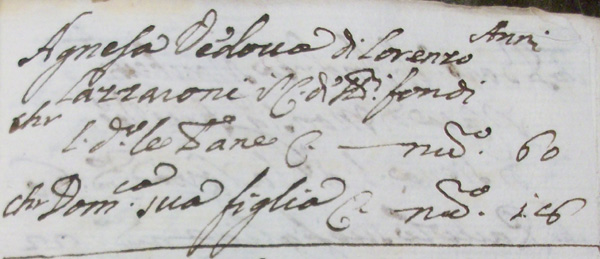 Agnesa Vedova di Lorenzo Anni
Lazzaroni C. di fondi
chr l. d.º le Tane C. — nu.º 60
chr Dom.ca sua figlia C. — nu.º 16